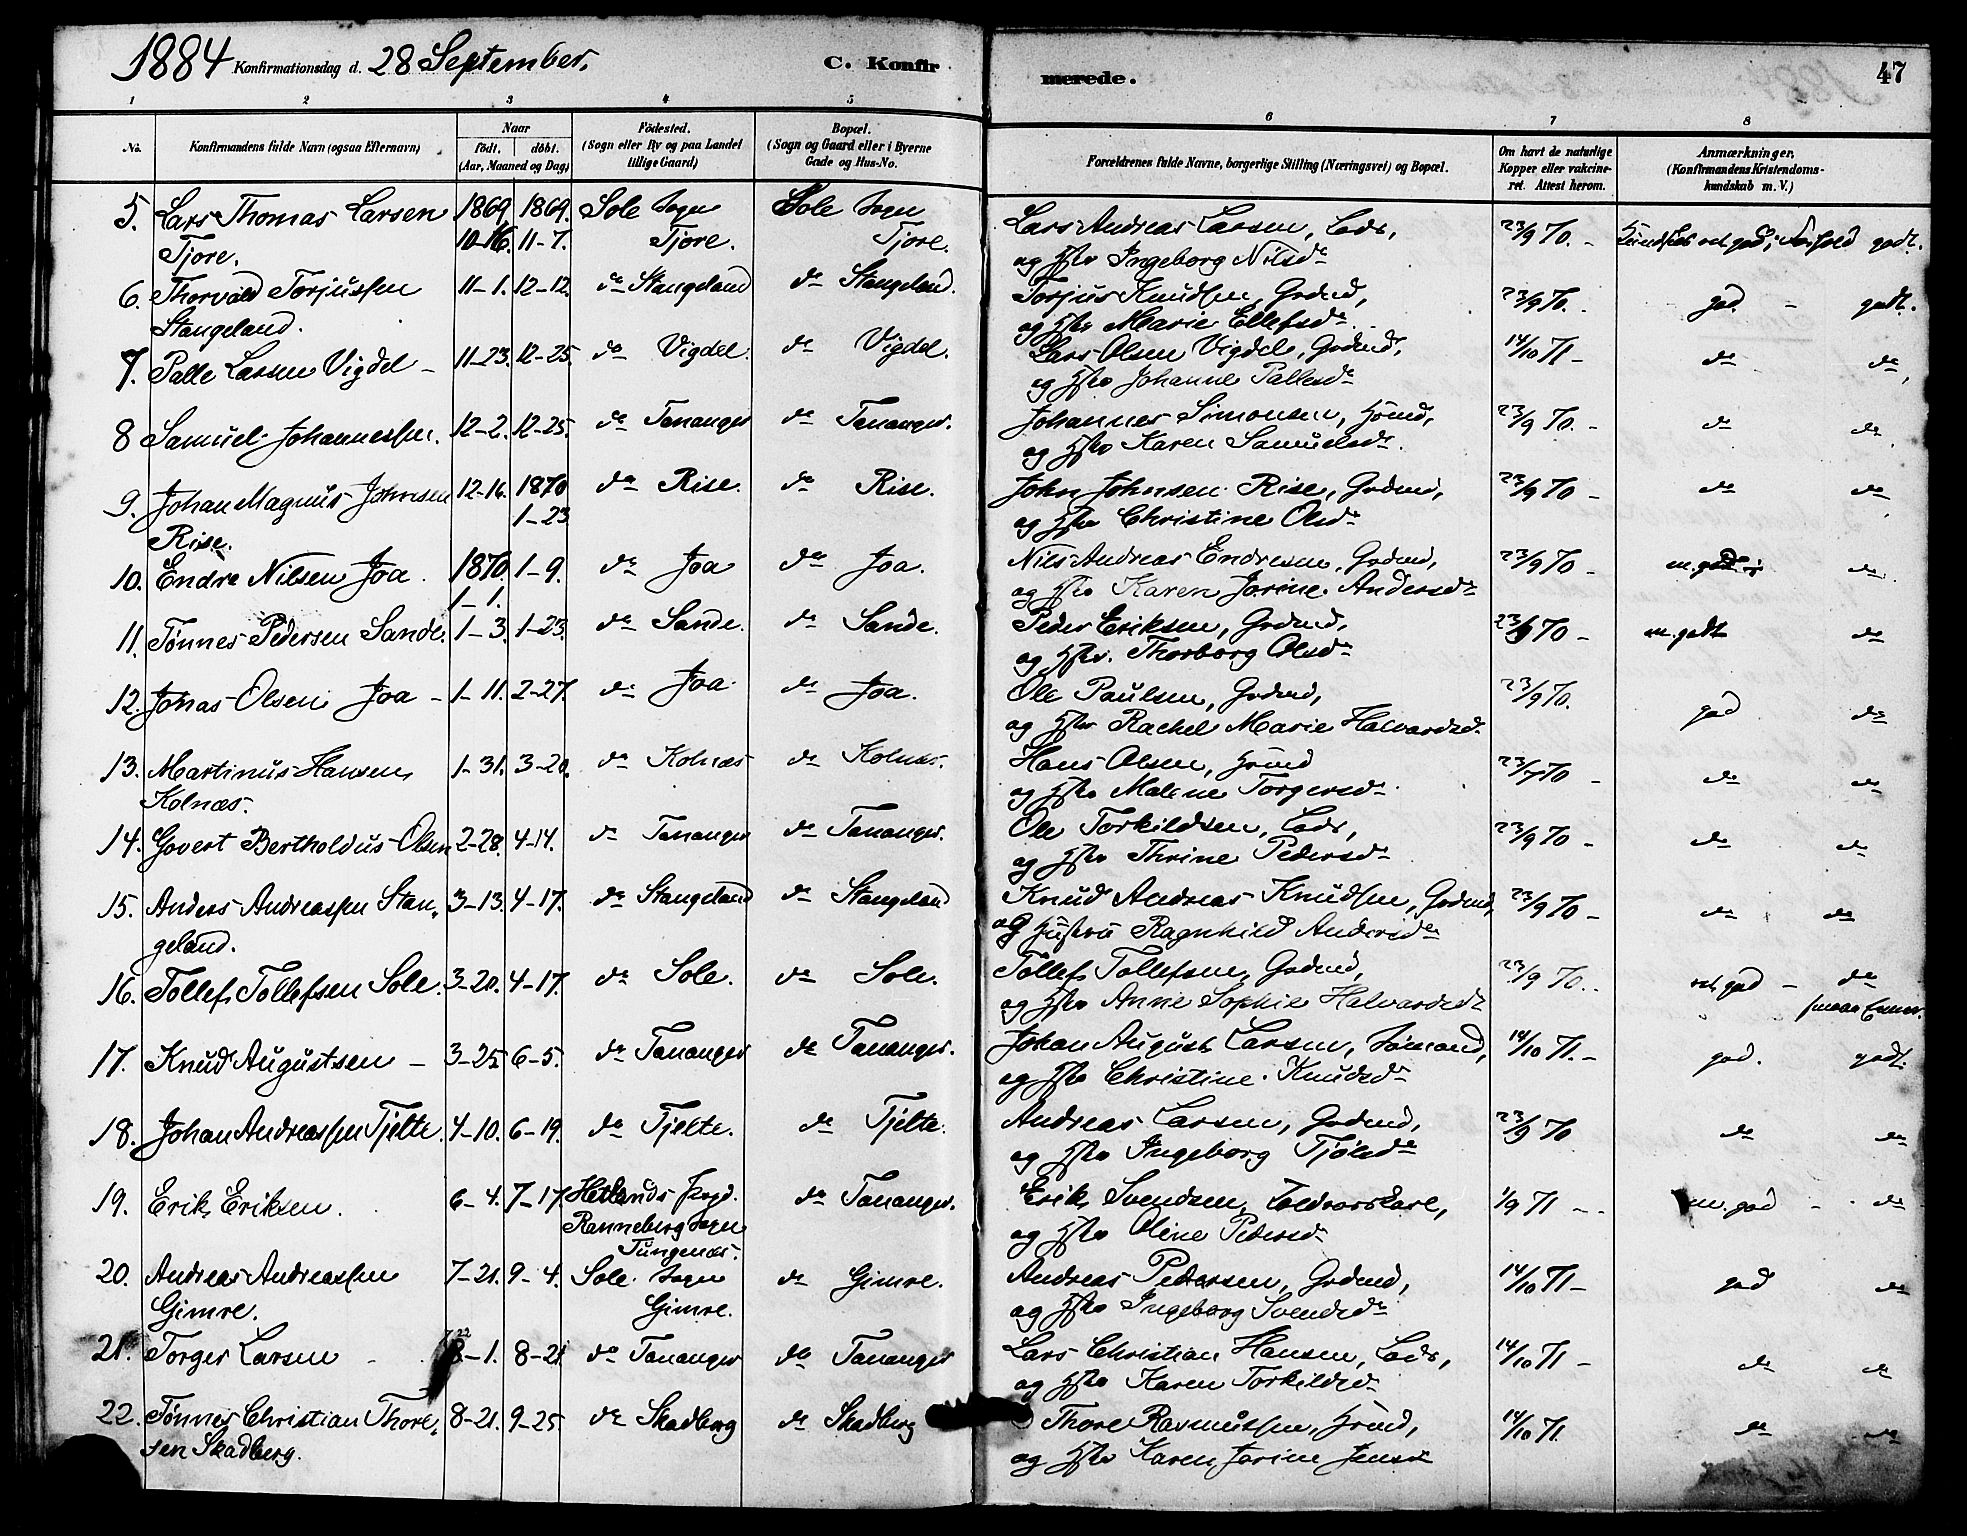 1884 Konfirmationsdag d. 28 September. C. Konfirmerede. 47
1 2 3 4 5 6 7 8
No. Konfirmandens fulde Navn (ogsaa Efternavn) Naar født. døbt. (Aar, Maaned og Dag) Fødested. (Sogn eller By og paa Landet tillige Gaard) Bopæl. (Sogn og Gaard eller i Byerne Gade og Hus-No. Forældrenes fulde Navne, borgerlige Stilling (Næringsvei) og Bopæl. Om havt de naturlige Kopper eller vakcineret. Attest herom. Anmærkninger. (Konfirmandens Kristendomskundskab m. V.)
5. Lars Thomas Larsen 1869 1869. Sole Sogn Sole Sogn Lars Andreas Larsen, Lods, 23/9 70. - Kundskab ret god; Forhold godt.
Tjore. 10-16. 11-7. Tjore. Tjore. og Hstr Ingeborg Nilsdr
6. Thorvald Torjussen 11-1. 12-12. do Stangeland do Stangeland. Torjus Knudsen, Grdmd, 23/9 70. god. - godt.
Stangeland. og Hstr Marie Ellefsdr.
7. Palle Larsen Vigdel - 11-23. 12-25. do Vigdel. do Vigdel. Lars Olsen Vigdel, Grdmd, 14/10 71 - do do
og Hstr Johanne Pallesdr
8 Samuel Johannessen. 12-2. 12-25. do Tananger do Tananger. Johannes Simonsen, Hsmd, 23/9 70. - do do
og Hstr Karen Samuelsdr.
9. Johan Magnus Johnsen 12-16. 1870 do Rise. do Rise. John Johnsen Rise, Grdmd, 23/9 70 - do do
Rise. 1-23 og Hstr Christine Olsdr
10. Endre Nilsen Joa. 1870. 1-9. do Joa do Joa. Nils Andreas Endresen, Grdmd, 23/9 70 - m. god - do
1-1. og Hstr Karen Jorine Andersdr
11. Tønnes Pedersen Sande. 1-3. 1-23. do Sande. do Sande. Peder Eriksen, Grdmd, 23/9 70 - m. godt do
og Hstr. Thorborg Olsdr
12. Jonas Olsen Joa - 1-11. 2-27. do Joa. do Joa. Ole Paulsen, Grdmd, 23/9 70. god do
og Hstr Rachel Marie Halvardsdr.
13. Martinus Hansen 1-31. 3-20. do Kolnæs do Kolnæs. Hans Olsen, Hsmd 23/9 70 - do do
Kolnæs. og Hstr Malene Torgersdr.
14. Govert Bertholdus Olsen 2-28. 4-14. do Tananger do Tananger. Ole Torkildsen, Lods, 23/9 70 - do do
og Hstr Thrine Pedersdr
15. Anders Andreassen Stan- 3-13. 4-17. do Stangeland do Stangeland Knud Andreas Knudsen, Grdmd, 23/9 70 - do do
geland. og Hustru Ragnhild Andersdr
16. Tollef Tollefsen Sole. 3-20. 4-17. do Sole. do Sole. Tollef Tollefsen, Grdmd, 23/9 70. - ret god - do
og Hstr Anne Sophie Halvardsdr
17. Knud Augustsen - 3-25 6-5. do Tananger do Tananger. Johan August Larsen, Sømand, 14/10 71. - god. godt.
og Hstr Christine Knudsdr
18. Johan Andreassen Tjelte. 4-10. 6-19. do Tjelte. do Tjelte. Andreas Larsen, Grdmd, 23/9 70 do do
og Hstr Ingeborg Tjølsdr
19. Erik Eriksen. 6-4. 7-17. Hetlands Prgd. do Tananger. Erik Svendsen, Toldvorskarl, 1/9 71 - - m. god - do
Ranneberg Sogn og Hstr Oline Pedersdr
Tungenæs.
20. Andreas Andreassen 7-21. 9-4. Sole Sogn do Gimre. Andreas Pedersen, Grdmd, 14/10 71 - god do
Gimre. Gimre. og Hstr Ingeborg Svendsdr
21. Torger Larsen - 8-1. 8-21 do Tananger do Tananger Lars Christian Hansen, Lods, 14/10 71 - do do
og Hstr Karen Torkildsdr
22. Tønnes Christian Thore- 8-21. 9-25. do Skadberg do Skadberg Thore Rasmussen, Hsmd, 14/10 71. do do
sen Skadberg. og Hstr Karen Jorine Jensdr